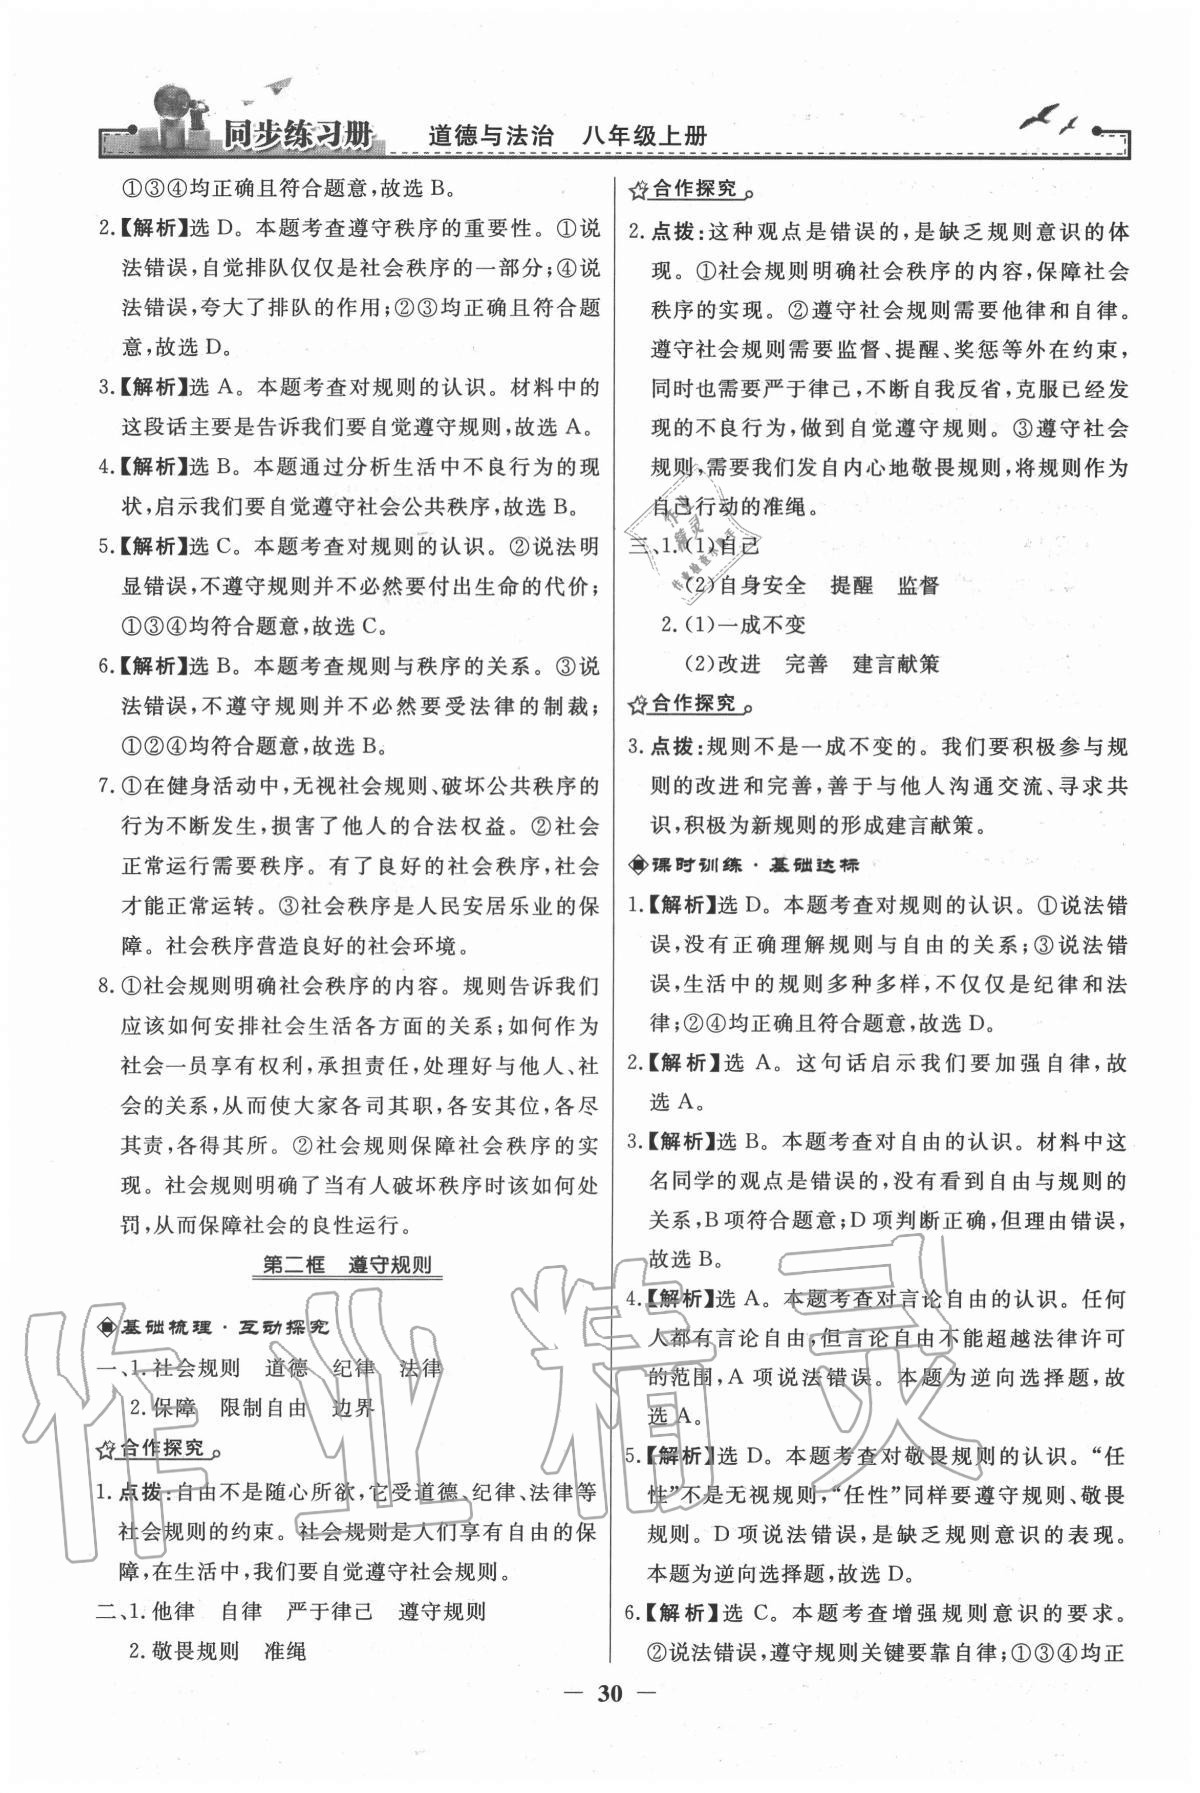 同步练习册 道德与法治 八年级上册
①③④均正确且符合题意,故选 B。
2.【解析】选 D。本题考查遵守秩序的重要性。①说
法错误,自觉排队仅仅是社会秩序的一部分;④说
法错误,夸大了排队的作用;②③均正确且符合题
意,故选 D。
3.【解析】选 A。本题考查对规则的认识。材料中的
这段话主要是告诉我们要自觉遵守规则,故选 A。
4.【解析】选 B。本题通过分析生活中不良行为的现
状,启示我们要自觉遵守社会公共秩序,故选 B。
5.【解析】选 C。本题考查对规则的认识。②说法明
显错误,不遵守规则并不必然要付出生命的代价;
①③④均符合题意,故选 C。
6.【解析】选 B。本题考查规则与秩序的关系。③说
法错误,不遵守规则并不必然要受法律的制裁;
①②④均符合题意,故选 B。
7.①在健身活动中,无视社会规则、破坏公共秩序的
行为不断发生,损害了他人的合法权益。②社会
正常运行需要秩序。有了良好的社会秩序,社会
才能正常运转。③社会秩序是人民安居乐业的保
障。社会秩序营造良好的社会环境。
8.①社会规则明确社会秩序的内容。规则告诉我们
应该如何安排社会生活各方面的关系;如何作为
社会一员享有权利,承担责任,处理好与他人、社
会的关系,从而使大家各司其职,各安其位,各尽
其责,各得其所。②社会规则保障社会秩序的实
现。社会规则明确了当有人破坏秩序时该如何处
罚,从而保障社会的良性运行。
第二框 遵守规则
基础梳理·互动探究
一、1.社会规则 道德 纪律 法律
2.保障 限制自由 边界
合作探究
1.点拨:自由不是随心所欲,它受道德、纪律、法律等
社会规则的约束。社会规则是人们享有自由的保
障,在生活中,我们要自觉遵守社会规则。
二、1.他律 自律 严于律己 遵守规则
2.敬畏规则 准绳
合作探究
2.点拨:这种观点是错误的,是缺乏规则意识的体
现。①社会规则明确社会秩序的内容,保障社会
秩序的实现。②遵守社会规则需要他律和自律。
遵守社会规则需要监督、提醒、奖惩等外在约束,
同时也需要严于律己,不断自我反省,克服已经发
现的不良行为,做到自觉遵守规则。③遵守社会
规则,需要我们发自内心地敬畏规则,将规则作为
自己行动的准绳。
三、1.(1)自己
(2)自身安全 提醒 监督
2.(1)一成不变
(2)改进 完善 建言献策
合作探究
3.点拨:规则不是一成不变的。我们要积极参与规
则的改进和完善,善于与他人沟通交流、寻求共
识,积极为新规则的形成建言献策。
课时训练·基础达标
1.【解析】选 D。本题考查对规则的认识。①说法错
误,没有正确理解规则与自由的关系;③说法错
误,生活中的规则多种多样,不仅仅是纪律和法
律;②④均正确且符合题意,故选 D。
2.【解析】选 A。这句话启示我们要加强自律,故
选 A。
3.【解析】选 B。本题考查对自由的认识。材料中这
名同学的观点是错误的,没有看到自由与规则的
关系,B 项符合题意;D 项判断正确,但理由错误,
故选 B。
4.【解析】选 A。本题考查对言论自由的认识。任何
人都有言论自由,但言论自由不能超越法律许可
的范围,A 项说法错误。本题为逆向选择题,故
选 A。
5.【解析】选 D。本题考查对敬畏规则的认识。“任
性”不是无视规则,“任性”同样要遵守规则、敬畏
规则。D 项说法错误,是缺乏规则意识的表现。
本题为逆向选择题,故选 D。
6.【解析】选 C。本题考查增强规则意识的要求。
②说法错误,遵守规则关键要靠自律;①③④均正
— 30 —
作业精灵
作业
精灵